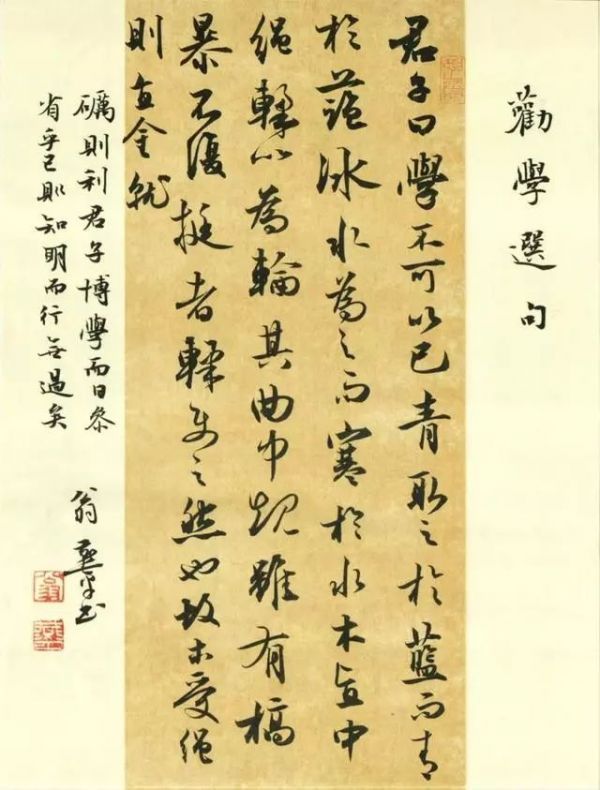 勸學選句
君子曰學不可以已青取之於藍而青
於藍冰水為之而寒於水木直中
繩輮以為輪其曲中規雖有槁
暴不復挺者輮使之然也故木受繩
則直金就
礪則利君子博學而日參
省乎己則知明而行無過矣
翁